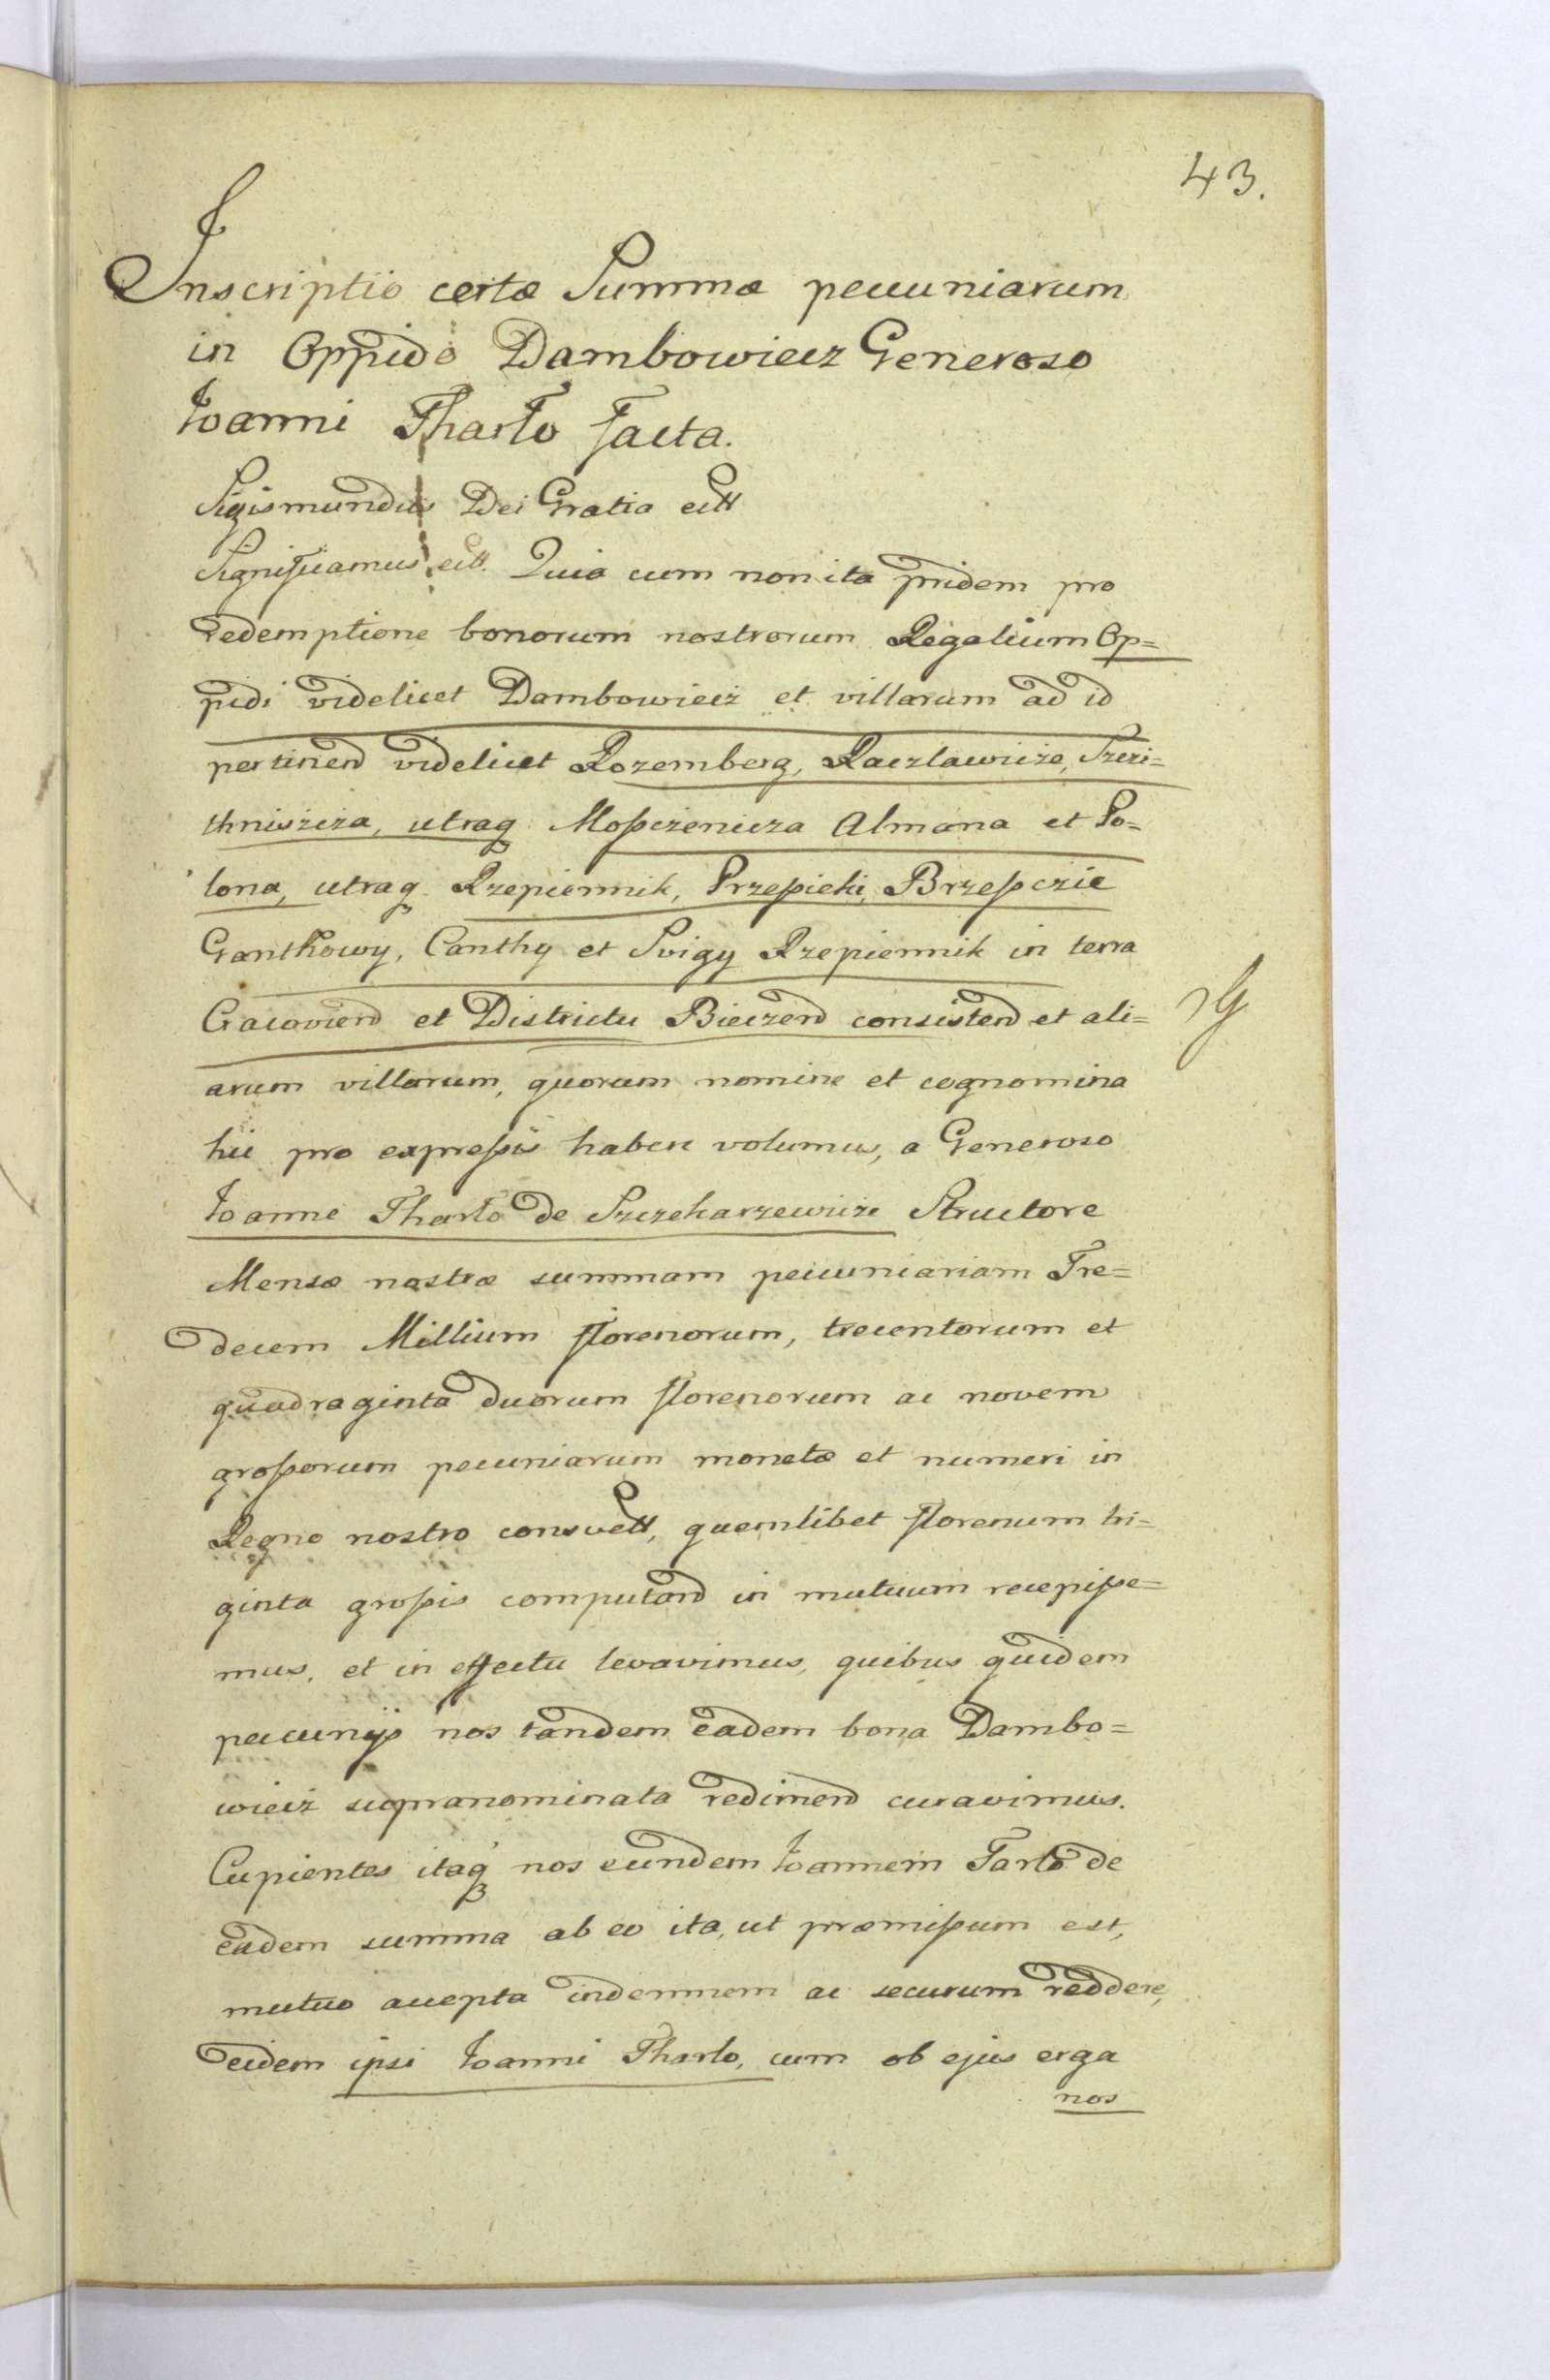 43.
Inscriptio certæ Summæ pecuniarum
in Oppido Dambowiecz Generoso
Ioanni Tharlo facta.
Sigismundus Dei Gratia ett
Significamus ett. Quia cum non ita pridem pro
redemptione bonorum nostrorum Regalium Op=
pidi videlicet Dambowiecz et villarum ad id
pertinend videlicet Rozemberg, Raczlawicze, Szczi=
thnisziza, utraq Moßczenicza Almana et Po=
lona, utraq Rzepiennik, Przeßieki, Brzeßczie
Ganthowy, Canthy et Swigy Rzepiennik in terra
Cracoviend et Districtu Bieczend consistend et ali=
arum villarum, quorum nomine et cognomina
hic pro expreßis habere volumus, a Generoso
Ioanne Tharlo de Szczekarzewicze Structore
Mensæ nostræ summam pecuniariam Tre=
decem Millium florenorum, trecentorum et
quadraginta duorum florenorum ac novem
großorum pecuniarum monetæ et numeri in
Regno nostro consvett, quemlibet florenum tri=
ginta großis computand in mutuum recepiße=
mus, et in effectu levavimus, quibus quidem
pecunijs nos tandem eadem bona Dambo=
wiecz supranominata redimend curavimus.
Cupientes itaq nos eundem Ioannem Tarlo de
eadem summa ab eo ita, ut præmißum est,
mutuo accepta indemnem ac securum reddere,
eidem ipsi Ioanni Tharlo, cum ob ejus erga
nos